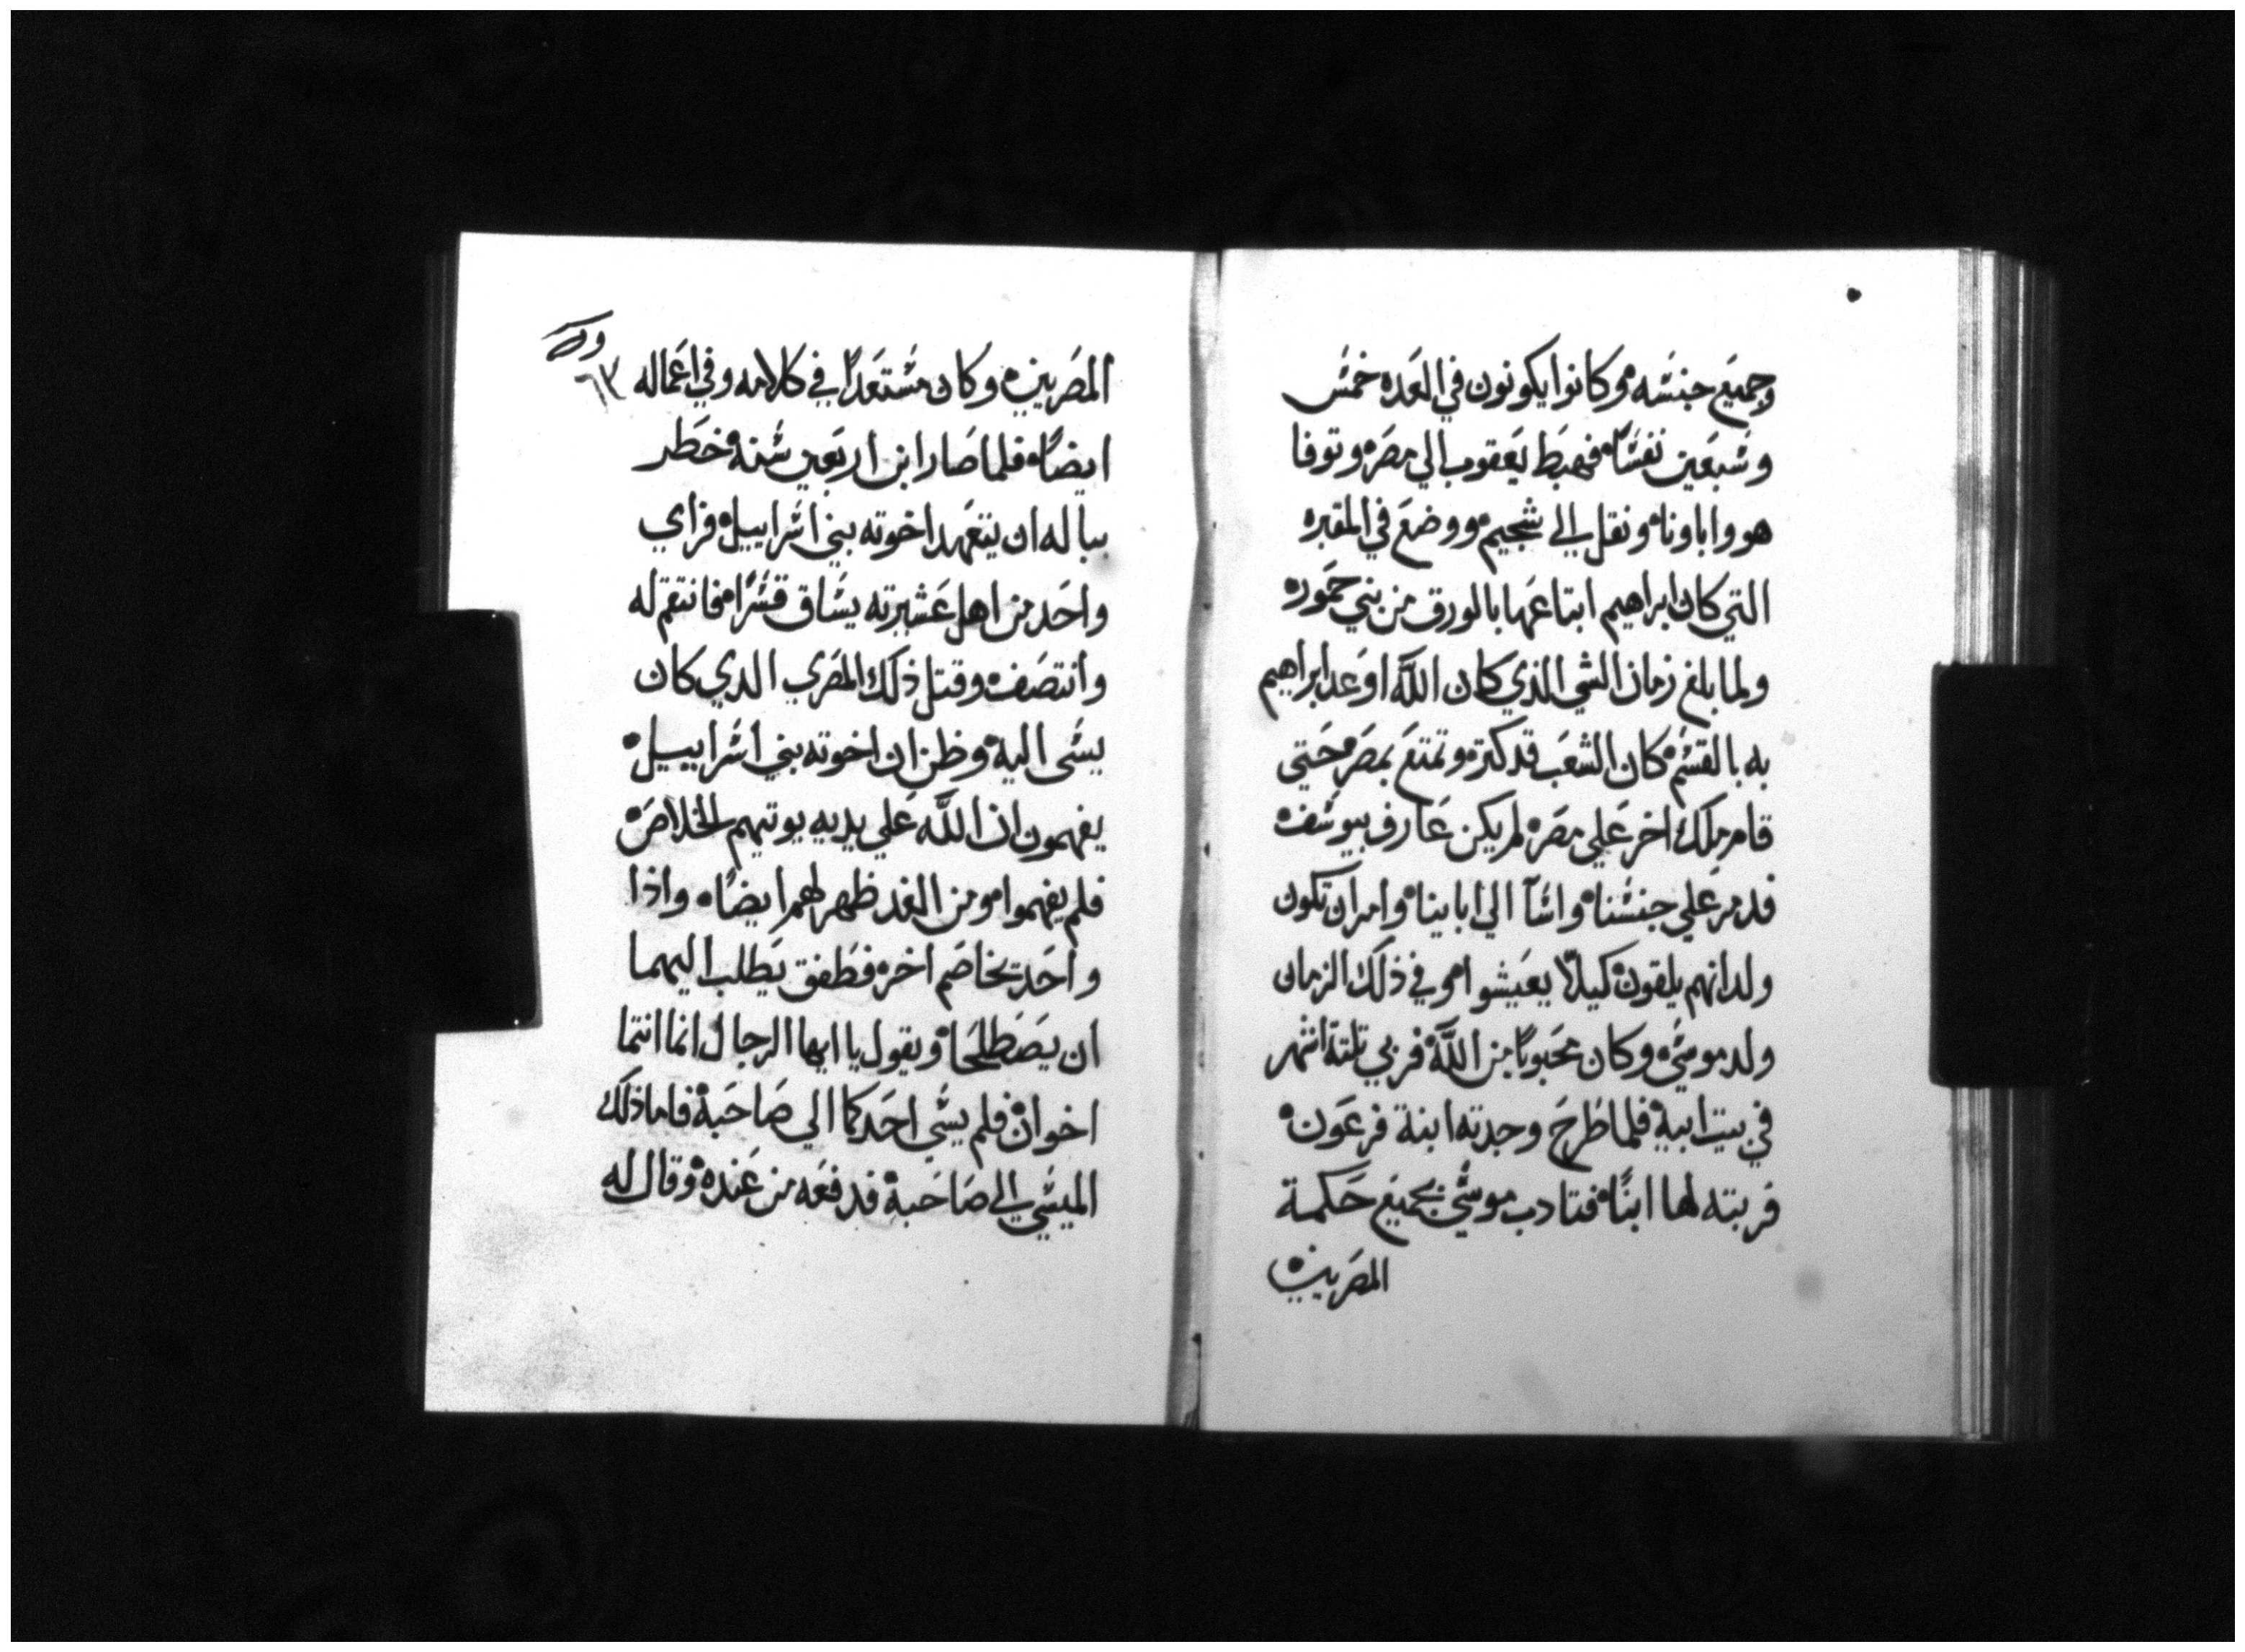 وجميع جنسه وكانوا يكونون في العده خمس
وسبعين نفسًا فهبط يعقوب الي مصر وتوفا
هو واباونا ونقل الي شجيم ووضع في المقبره
التي كان ابراهيم ابتاعها بالورق من بني حموره
ولما بلغ زمان الشي الذي كان الله اوعد ابراهيم
به بالقسم كان الشعب قد كتر وتمتع بمصر حتي
قام ملك اخر علي مصر لم يكن عارف بيوسف
فدمر علي جنسنا واسآ الي ابايناه وامر ان تكون
ولدانهم يلقون كيلا يعيشوا وفي ذلك الزمان
ولد موسي وكان محبوبًا من الله فربي تلتة اشهر
في بيت ابيه فلما طرح وجدته ابنة فرعون
فربته لها ابنًا فتادب موسي بجميع حكمة
المصريين
٦٣
المصريين وكان مستعدًا في كلامه وفي اعماله
ايضًا فلما صار ابن اربعين سنه خطر
بباله ان يتعهد اخوته بني اسراييل فراي
واحد من اهل عشيرته يساق قسرًا فانتقم له
وانتصف وقتل ذلك المصري الدي كان
يسي اليه وظن ان اخوته بني اسراييل
يفهمون ان الله علي يديه يوتيهم الخلاص
فلم يفهموا ومن الغد ظهر لهم ايضًا واذا
واحد يخاصم اخر فطفق يطلب اليهما
ان يصطلحا ويقول يا ايها الرجال انما انتما
اخوان فلم يسي احدكما الي صاحبه فاما ذلك
الميسي الي صاحبه فدفعه من عنده وقال له